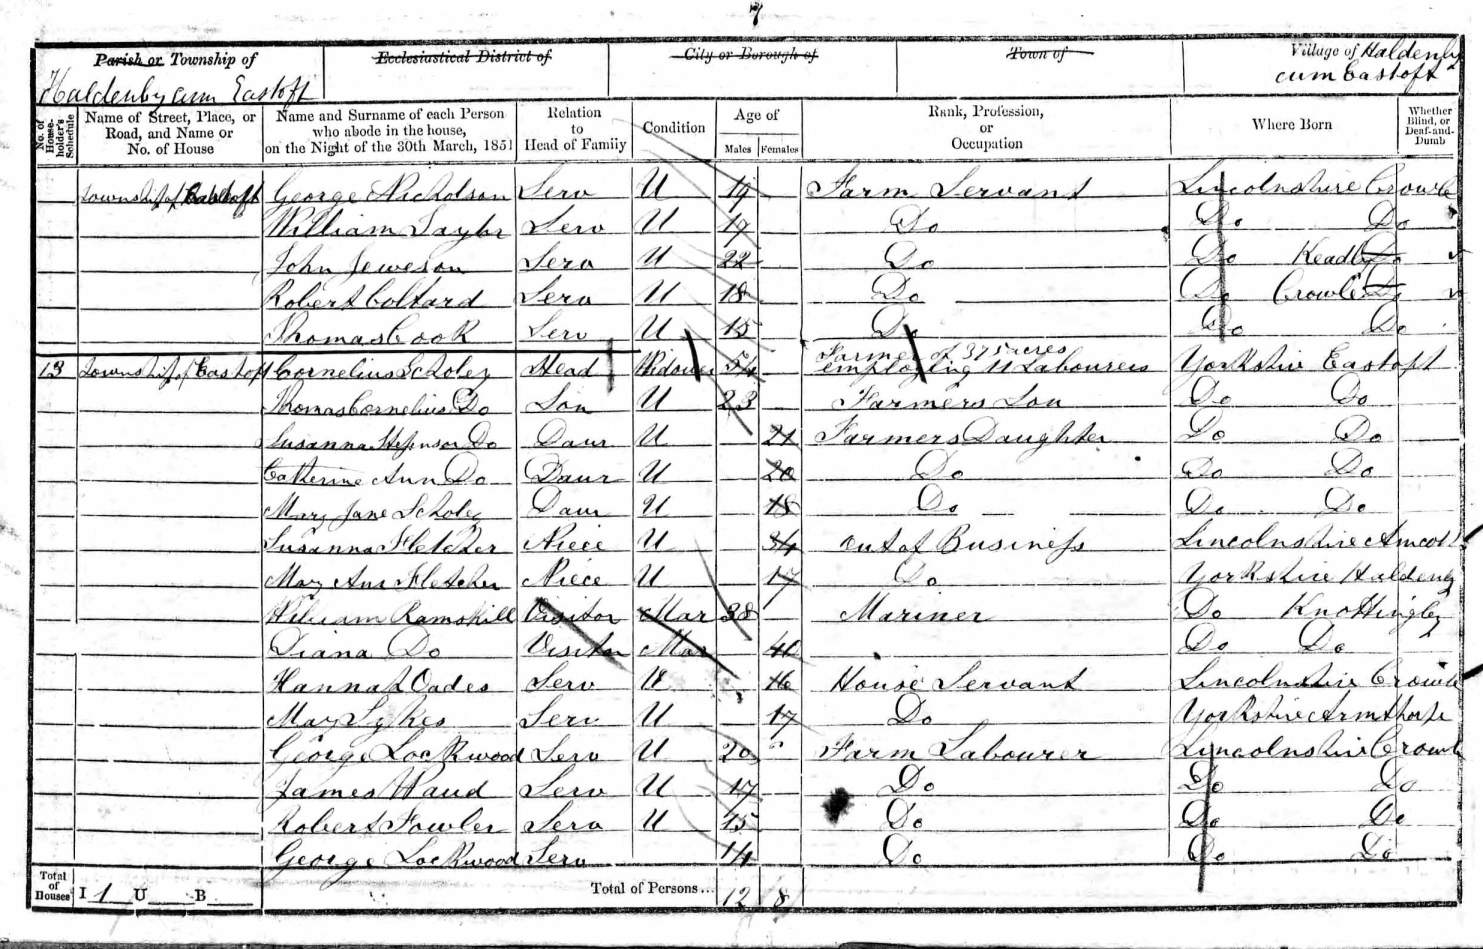 7
Parish or Township of
Ecclesiastical District of
City or Borough of
Town of
Village of Haldenby
cum Eastoft
Haldenby cum Eastoft
No. of House-holder's Schedule
Name of Street, Place, or Road, and Name or No. of House
Name and Surname of each Person who abode in the house, on the Night of the 30th March, 1851
Relation to Head of Family
Condition
Age of
Males Females
Rank, Profession, or Occupation
Where Born
Whether Blind, or Deaf-and-Dumb
Township of Eastoft George Nicholson Serv U 19 Farm Servant Lincolnshire Crowle
William Taylor Serv U 17 Do Do Do
John Jeweson Serv U 22 Do Do Keadby Do
Robert Coltard Serv U 18 Do Do Crowle Do
Thomas Cook Serv U 15 Do Do Do
13 Township of Eastoft Cornelius Scholey Head Widower 54 Farmer of 375 acres employing 11 Labourers Yorkshire Eastoft
Thomas Cornelius Do Son U 23 Farmers Son Do Do
Susanna Stepenson Do Daur U 21 Farmers Daughter Do Do
Catherine Ann Do Daur U 20 Do Do Do
Mary Jane Scholey Daur U 18 Do Do Do
Susanna Fletcher Niece U 34 Out of Business Lincolnshire Amcotts
Mary Ann Fletcher Niece U 17 Do Yorkshire Haldenby
William Ramskill Visitor Mar 38 Mariner Do Knottingley
Diana Do Visitor Mar 40 Do Do
Hannah Oades Serv U 16 House Servant Lincolnshire Crowle
Mary Sykes Serv U 17 Do Yorkshire Armthorpe
George Lockwood Serv U 20 Farm Labourer Lincolnshire Crowle
James Waud Serv U 17 Do Do Do
Robert Fowler Serv U 15 Do Do Do
George Lockwood Serv 14 Do Do Do
Total of Houses I 1 U B Total of Persons... 12 8